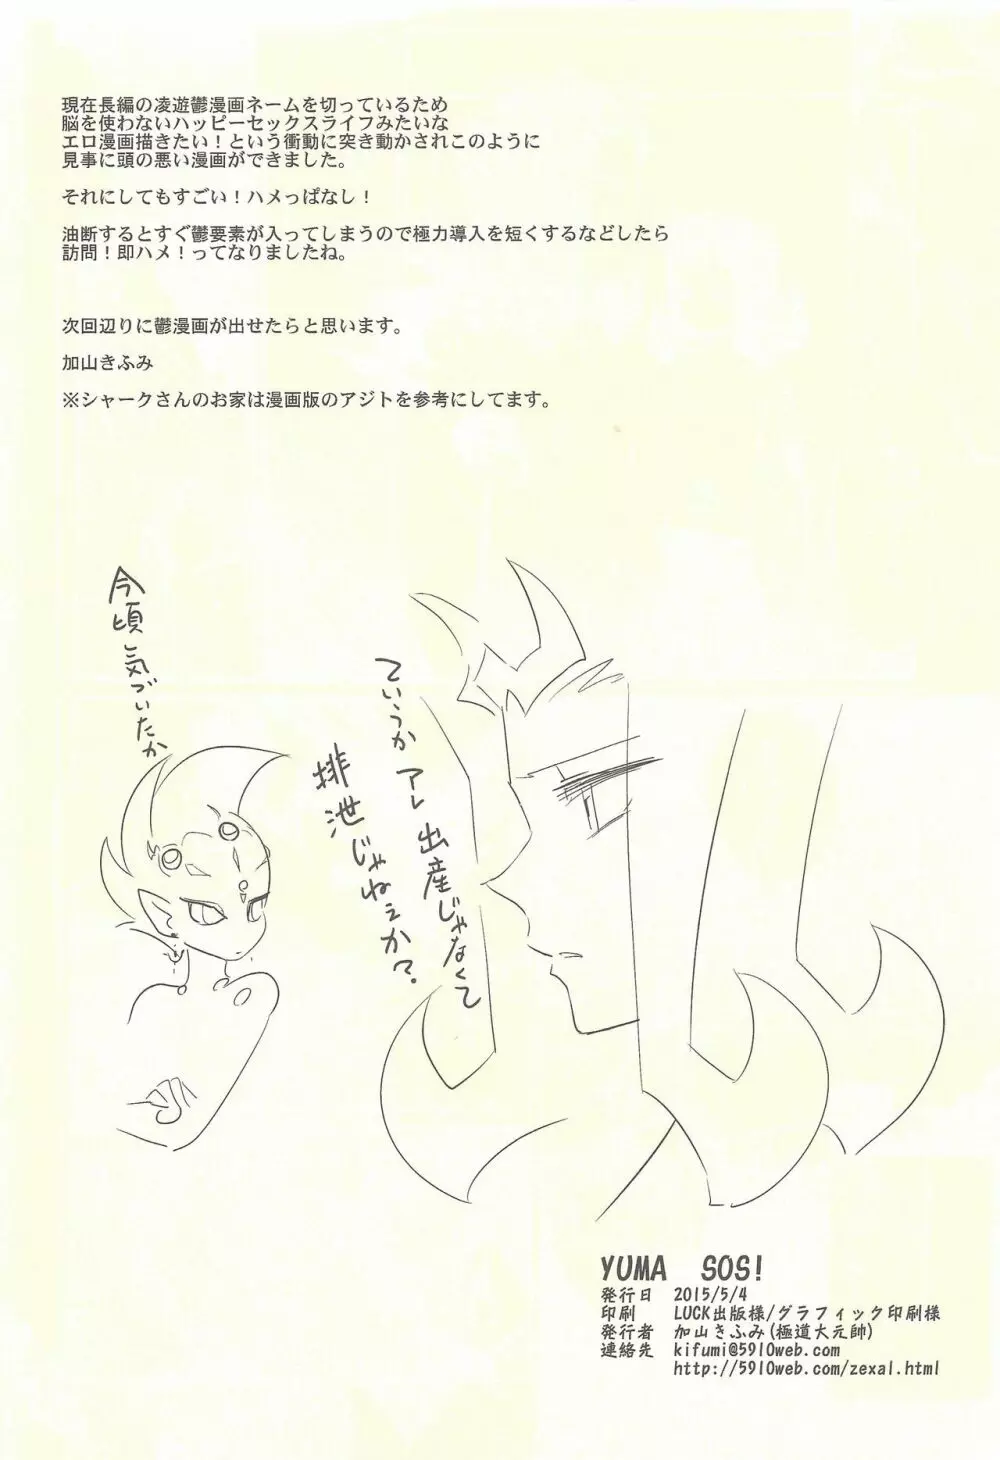 現在長編の凌遊鬱漫画ネームを切っているため
脳を使わないハッピーセックスライフみたいな
エロ漫画描きたい！という衝動に突き動かされこのように
見事に頭の悪い漫画ができました。
それにしてもすごい！ハメっぱなし！
油断するとすぐ鬱要素が入ってしまうので極力導入を短くするなどしたら
訪問！即ハメ！ってなりましたね。
次回辺りに鬱漫画が出せたらと思います。
加山きふみ
※シャークさんのお家は漫画版のアジトを参考にしてます。
ていうか アレ 出産じゃなくて
排泄じゃねぇか？
今頃気づいたか
YUMA SOS!
発行日 2015/5/4
印刷 LUCK出版様/グラフィック印刷様
発行者 加山きふみ(極道大元帥)
連絡先 kifumi@5910web.com
http://5910web.com/zexal.html